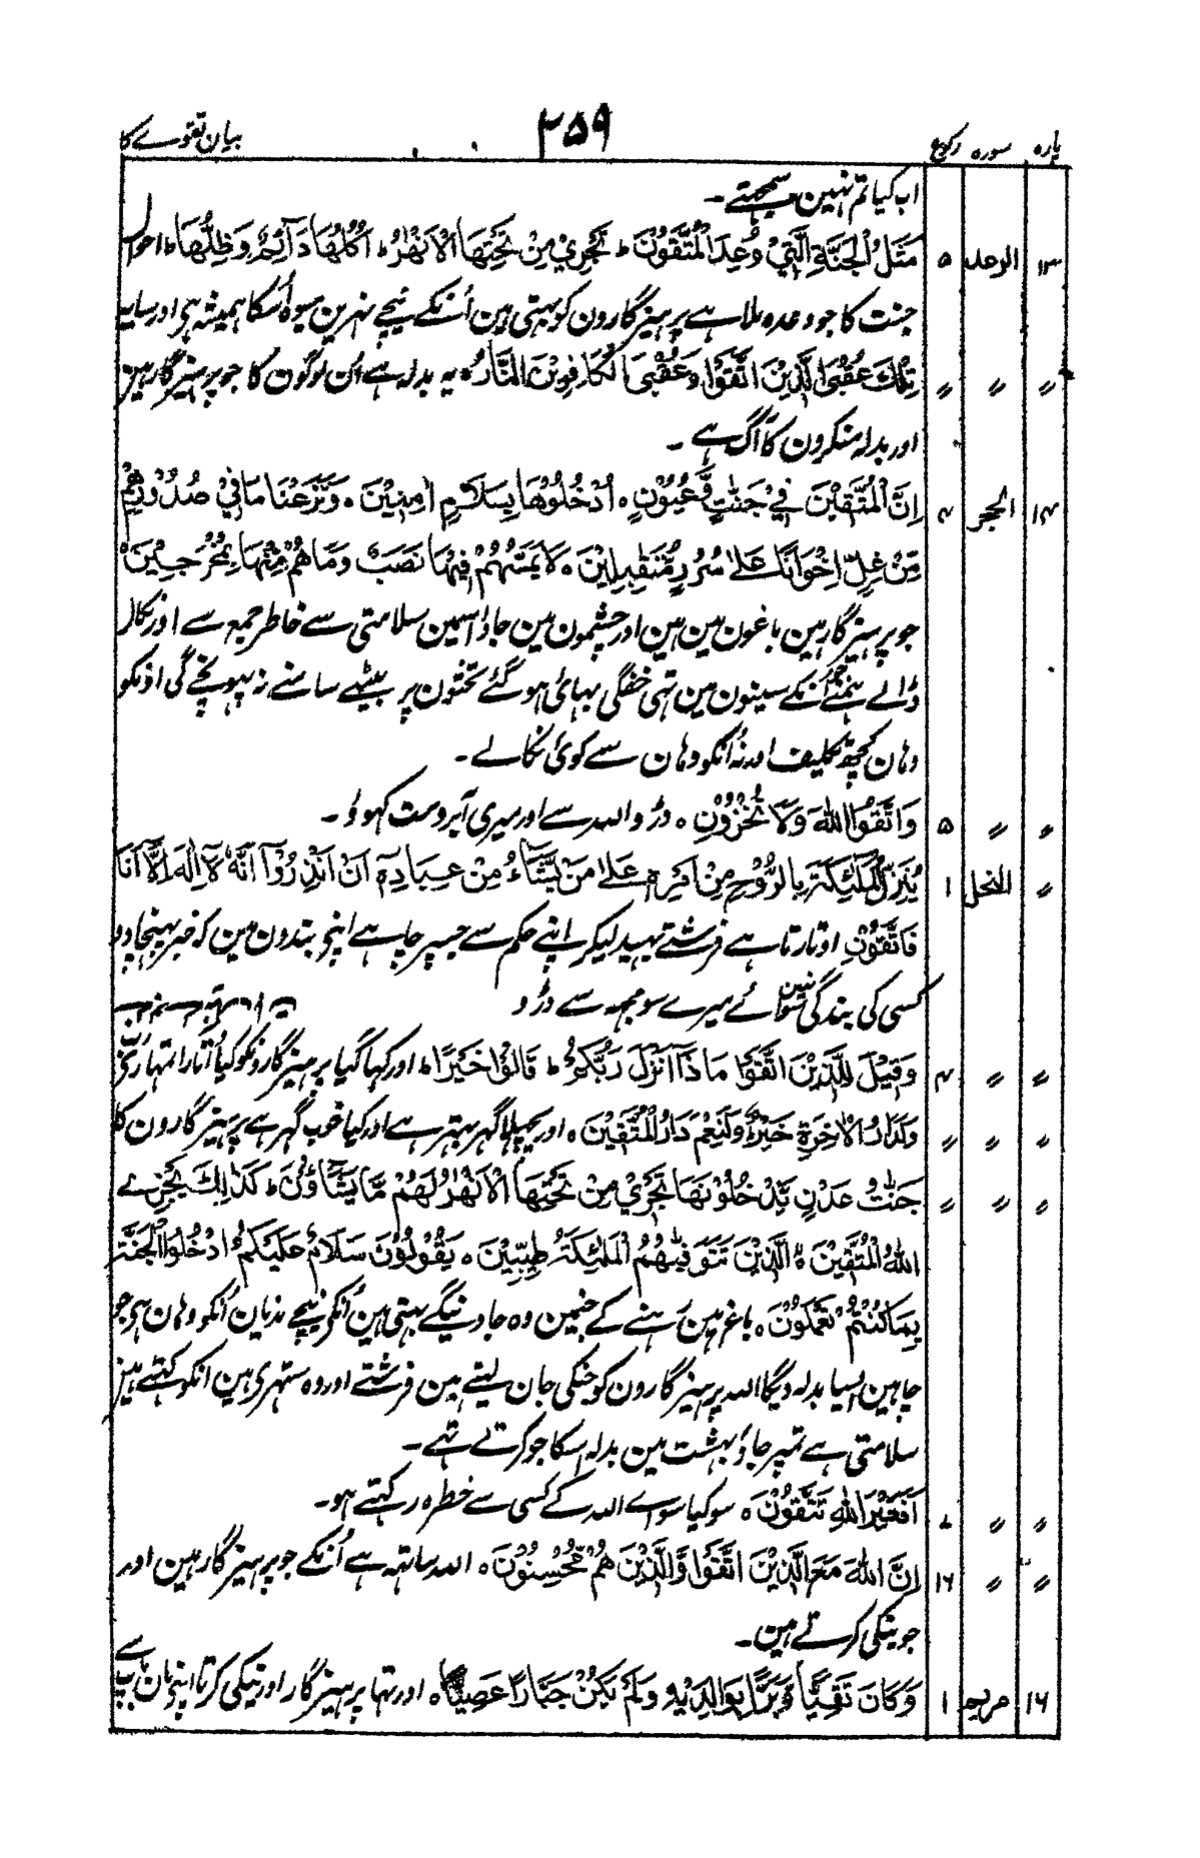 بیان تقوے کا ۲۵۹ پارہ سورہ رکوع
اب کیا تم نہین سمجھتے ۔
۱۳ الرعد ۵ مَثَلُ الْجَنَّةِ الَّتِيْ وُعِدَ الْمُتَّقُوْنَ ؕ تَجْرِيْ مِنْ تَحْتِهَا الْاَنْهٰرُ ؕ اُكُلُهَا دَآئِمٌ وَّظِلُّهَا ؕ احوال
جنت کا جو وعدہ ملا ہے پرہیزگارون کو بہتی ہین اُنکے نیچے نہرین میوہ اُسکا ہمیشہ ہی اور سایہ
〃 〃 〃 تِلْكَ عُقْبَى الَّذِيْنَ اتَّقَوْا وَعُقْبَى الْكَافِرِيْنَ النَّارُ ہ یہ بدلہ ہے اُن لوگون کا جو پرہیزگار ہین
اور بدلہ منکرون کا آگ ہے ۔
۱۴ الحجر ۴ اِنَّ الْمُتَّقِيْنَ فِيْ جَنّٰتٍ وَّعُيُوْنٍ ہ اُدْخُلُوْهَا بِسَلَامٍ اٰمِنِيْنَ ہ وَنَزَعْنَا مَا فِيْ صُدُوْرِهِمْ
مِّنْ غِلٍّ اِخْوَانًا عَلٰى سُرُرٍ مُّتَقٰبِلِيْنَ ہ لَا يَمَسُّهُمْ فِيْهَا نَصَبٌ وَّمَا هُمْ مِّنْهَا بِمُخْرَجِيْنَ ہ
جو پرہیزگار ہین باغون مین ہین اور چشمون مین جاؤ اسمین سلامتی سے خاطر جمع سے اور نکال
ڈالے ہمنے جو اُنکے سینون مین تہی خفگی بہائی ہو گئے تختون پر بیٹھے سامنے نہ پہونچے گی اونکو
وہان کچھ تکلیف اور نہ اُنکو وہان سے کوئی نکالے ۔
〃 〃 ۵ وَاتَّقُوا اللّٰهَ وَلَا تُخْزُوْنِ ہ ڈرو اللہ سے اور میری آبرو مت کہوؤ ۔
〃 النحل ۱ يُنَزِّلُ الْمَلٰٓئِكَةَ بِالرُّوْحِ مِنْ اَمْرِهٖ عَلٰى مَنْ يَّشَآءُ مِنْ عِبَادِهٖٓ اَنْ اَنْذِرُوْٓا اَنَّهٗ لَآ اِلٰهَ اِلَّآ اَنَا
فَاتَّقُوْنِ اوتارتا ہے فرشتے بہید لیکر اپنے حکم سے جسپر چاہے اپنے بندون مین کہ خبر پہنچا دو
کسی کی بندگی نہین سوائے میرے سو مجہہ سے ڈرو
〃 〃 ۴ وَقِيْلَ لِلَّذِيْنَ اتَّقَوْا مَاذَآ اَنْزَلَ رَبُّكُمْ ؕ قَالُوْا خَيْرًا ؕ اور کہا گیا پرہیزگارونکو کیا اُتارا تمہارے رب نے
〃 〃 〃 وَلَدَارُ الْاٰخِرَةِ خَيْرٌ ؕ وَلَنِعْمَ دَارُ الْمُتَّقِيْنَ ہ اور پچھلا گہر بہتر ہے اور کیا خوب گہر ہے پرہیزگارون کا
〃 〃 〃 جَنّٰتُ عَدْنٍ يَّدْخُلُوْنَهَا تَجْرِيْ مِنْ تَحْتِهَا الْاَنْهٰرُ لَهُمْ مَّا يَشَآؤُنَ ؕ كَذٰلِكَ يَجْزِي
اللّٰهُ الْمُتَّقِيْنَ ہ الَّذِيْنَ تَتَوَفّٰىهُمُ الْمَلٰٓئِكَةُ طَيِّبِيْنَ ہ يَقُوْلُوْنَ سَلَامٌ عَلَيْكُمُ ادْخُلُوا الْجَنَّةَ
بِمَا كُنْتُمْ تَعْمَلُوْنَ ہ باغ ہین رہنے کے جنمین وہ جاوینگے بہتی ہین اُنکے نیچے ندیان اُنکو وہان ہی جو
چاہین ایسا بدلہ دیگا اللہ پرہیزگارون کو جنکی جان لیتے ہین فرشتے اور وہ ستہری ہین انکو کہتے ہین
سلامتی ہے تمپر جاؤ بہشت مین بدلہ اسکا جو کرتے تہے ۔
〃 〃 ۷ اَفَغَيْرَ اللّٰهِ تَتَّقُوْنَ ہ سو کیا سواے اللہ کے کسی سے خطرہ رکہتے ہو ۔
〃 〃 ۱۶ اِنَّ اللّٰهَ مَعَ الَّذِيْنَ اتَّقَوْا وَّالَّذِيْنَ هُمْ مُّحْسِنُوْنَ ہ اللہ ساتہہ ہے اُنکے جو پرہیزگار ہین اور
جو نیکی کرتے ہین ۔
۱۶ مریم ۱ وَكَانَ تَقِيًّا وَّبَرًّا بِوَالِدَيْهِ وَلَمْ يَكُنْ جَبَّارًا عَصِيًّا ہ اور تہا پرہیزگار اور نیکی کرتا اپنے مان باپ سے